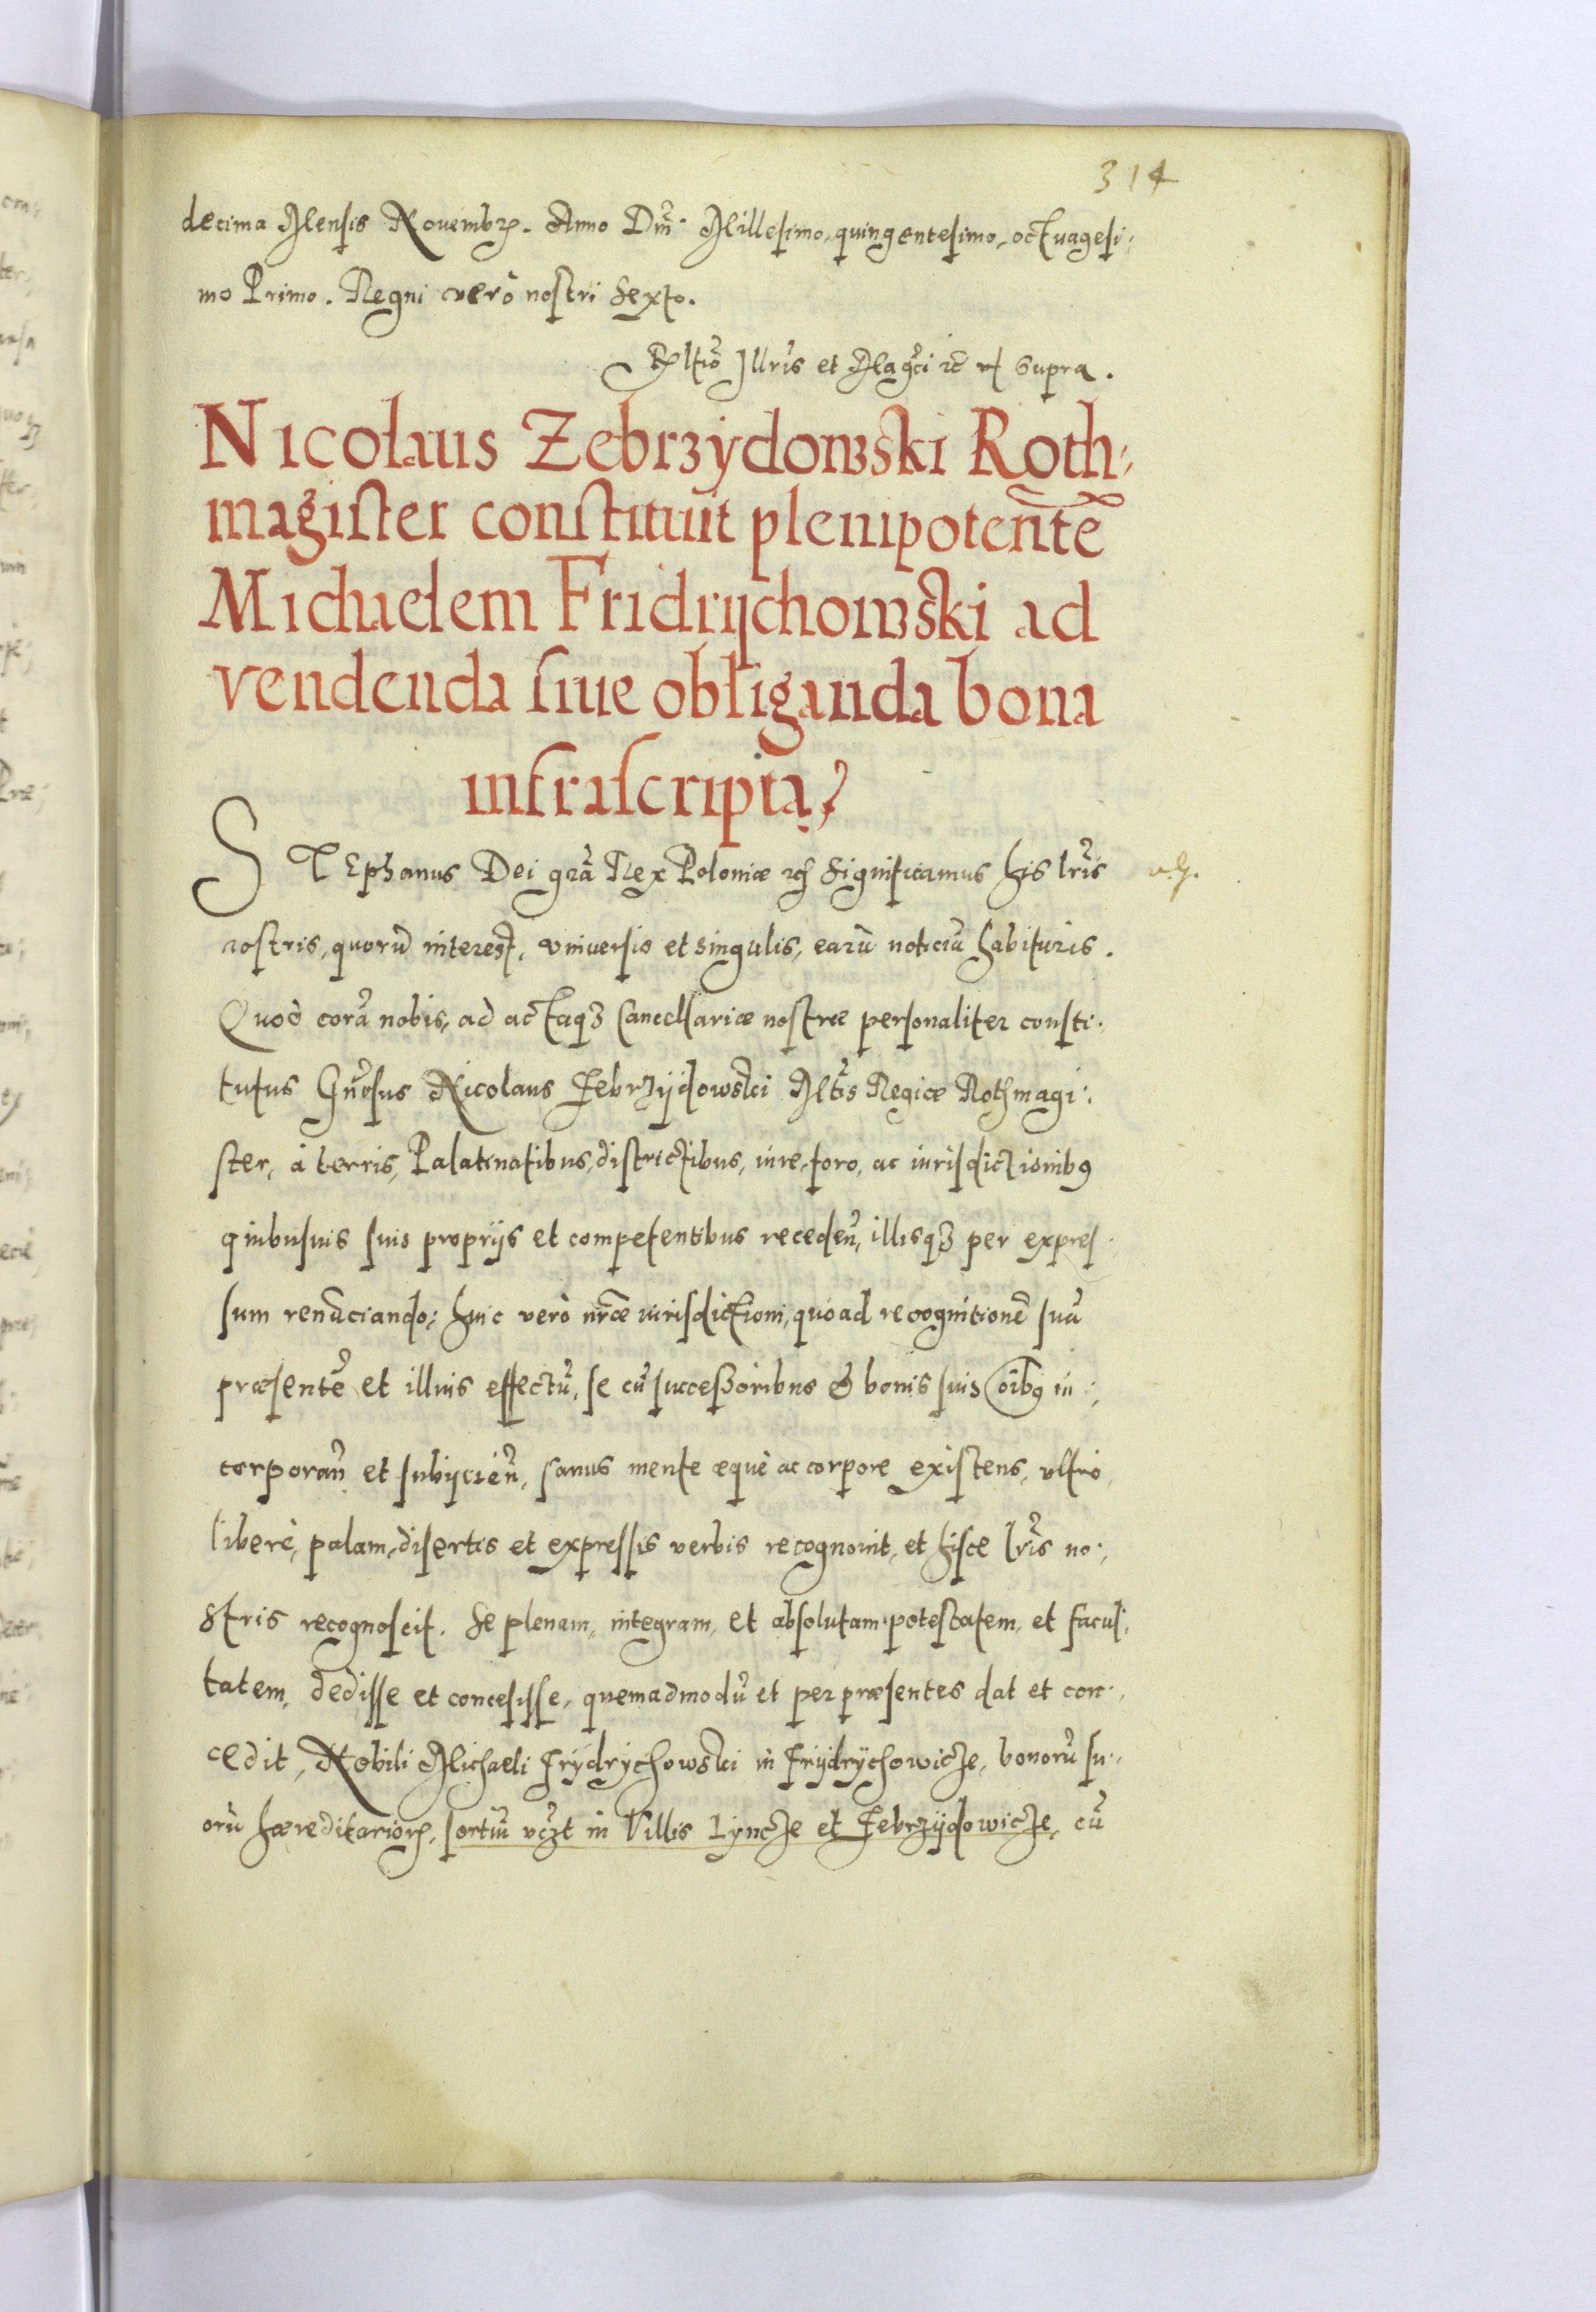 314
decima Mensis Novembr. Anno Dni. Millesimo, quingentesimo, octuagesi:
mo Primo. Regni verò nostri Sexto.
Rltio Illris et Magci rc ut Supra.
Nicolaus Zebrzydowski Roth:
magister constituit plenipotente͂
Michaelem Fridrijchowski ad
vendenda siue obliganda bona
infrascripta,
STEphanus Dei gra͂ Rex Poloniæ rc̃ Significamus his lris
nostris, quorũ interest, vniuersis et singulis, earũ noticiã habituris.
Quod corã nobis, ad actaqȝ Cancellariæ nostræ personaliter consti:
tutus Gnosus Nicolaus Zebrzijdowski Mtis Regiæ Rothmagi:
ster, à terris, Palatinatibus, districtibus, iure, foro, ac iurisdictionibꝰ
quibusuis suis proprijs et competentibus recedeñ, illisqȝ per expres:
sum renũciando; huic verò nræ iurisdictioni, quoad recognitionẽ suã
præsentẽ et illius effectũ, se cũ successoribus & bonis suis oĩbꝰ in:
corporañ et subijcieñ, sanus mente æquè ac corpore existens, vltrò
liberè, palam, disertis et expressis verbis recognouit, et hisce lris no:
stris recognoscit. Se plenam, integram, et absolutam potestatem, et facul:
tatem, dedisse et concesisse, quemadmodũ et per præsentes dat et con:
cedit, Nobili Michaeli Frydrychowski in Frijdrÿchowicze, bonorũ su:
orũ hæreditarior, sortiũ vczt in Villis Lÿncze et Zebrzijdowicze, cũ